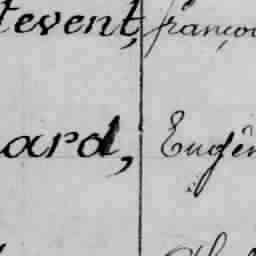 tevent, françoi
ard, Eugèn